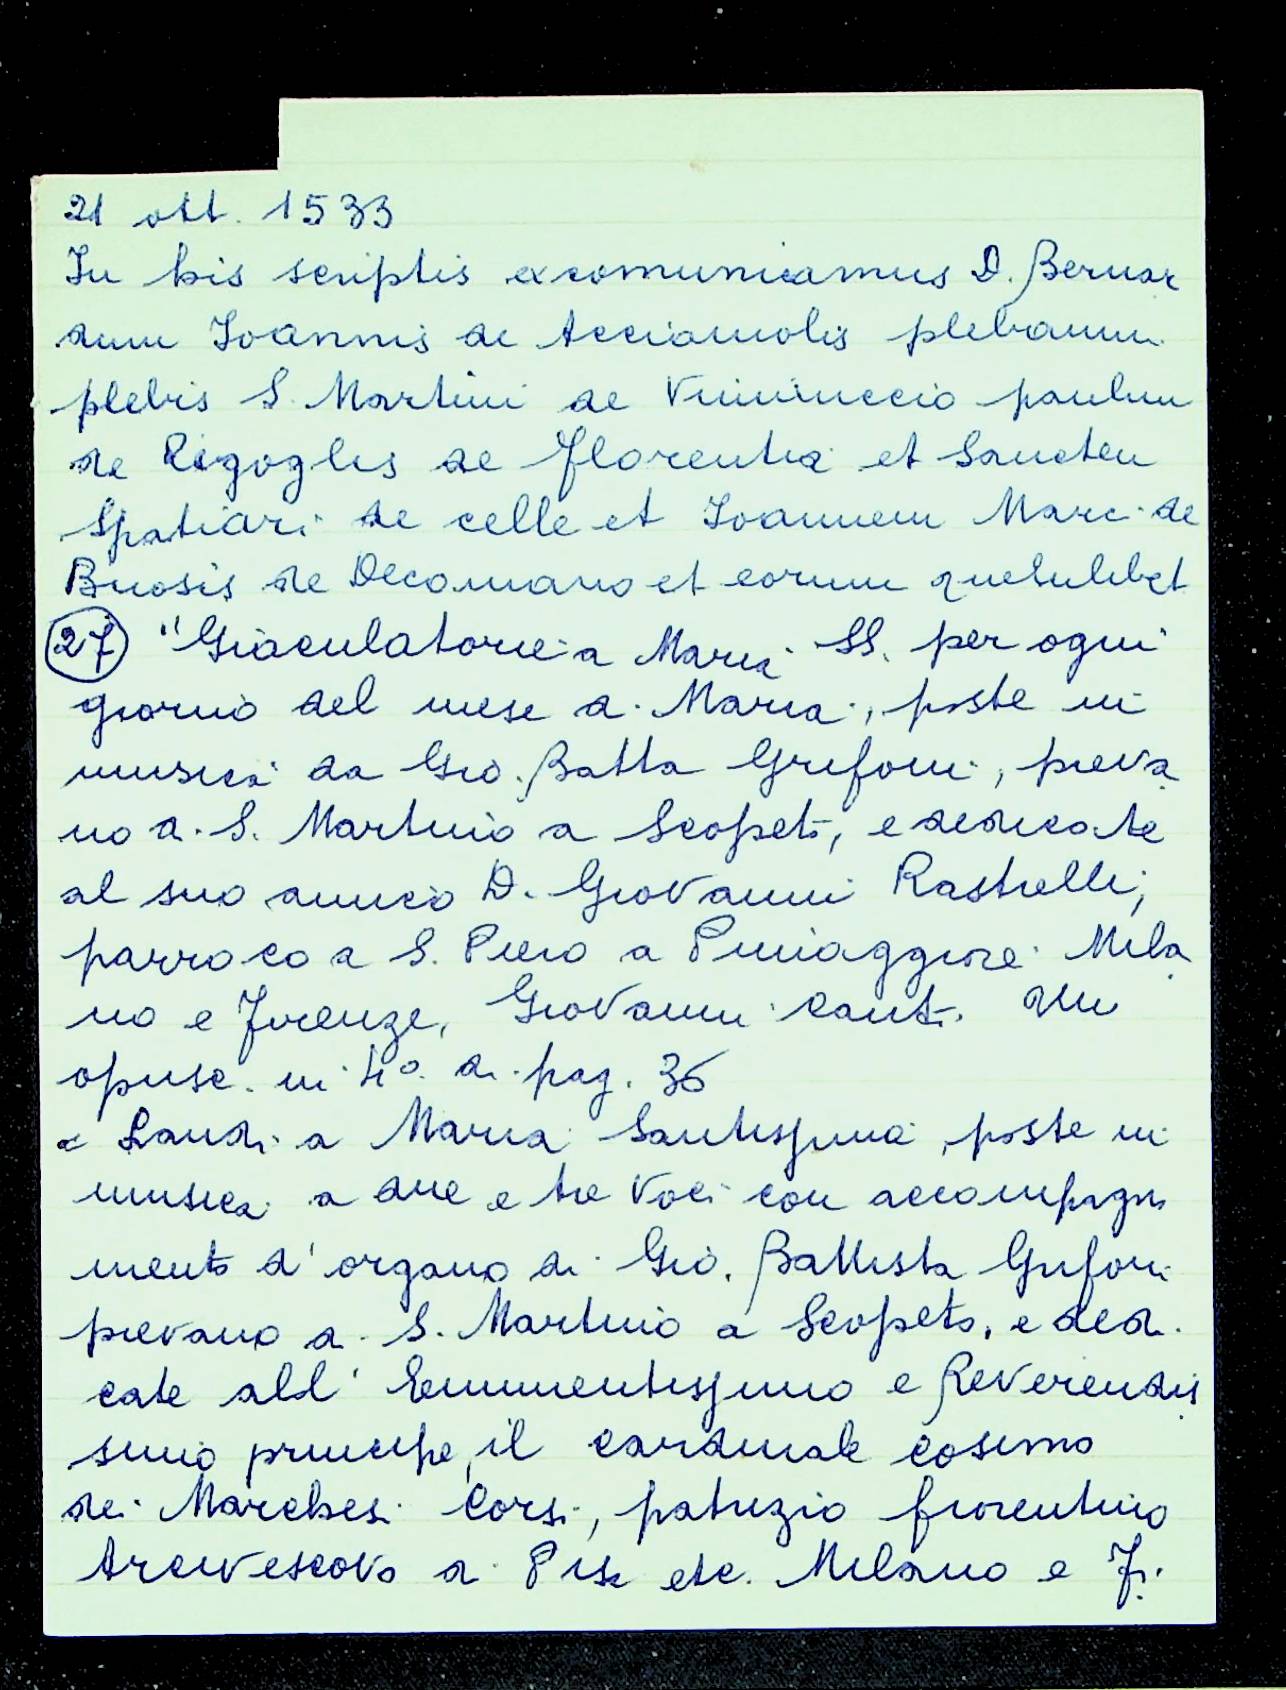 21 ott. 1533
In his scriptis excomunicamus D. Bernar
dum Ioannis de Acciaiuolis plebanum
plebis S. Martini de Viminiccio paulum
de Rigoglis de Florentia et Sancten
Spatiari de celle et Ioannem Marci de
Buosis de Decomano et eorum quemlibet
27 "Giaculatorie a Maria SS. per ogni
giorno del mese di Maria, poste in
musica da Gio. Batta Grifoni, pieva
no di S. Martino a Scopeto, e dedicate
al suo amico D. Giovanni Rastrelli,
parroco a S. Piero a Pimaggiore. Mila
no e Firenze, Giovanni Canti. Un
opusc. in 4°. di pag. 36
Laudi a Maria Santissima, poste in
musica a due e tre voci con accompagn
mento d'organo di Gio. Battista Grifoni
pievano di S. Martino a Scopeto, e dedi
cate all'Eminentissimo e Reverendis
simo principe, il cardinale Cosimo
dei Marchesi Corsi, patrizio fiorentino
Arcivescovo di Pisa etc. Milano e Fi.